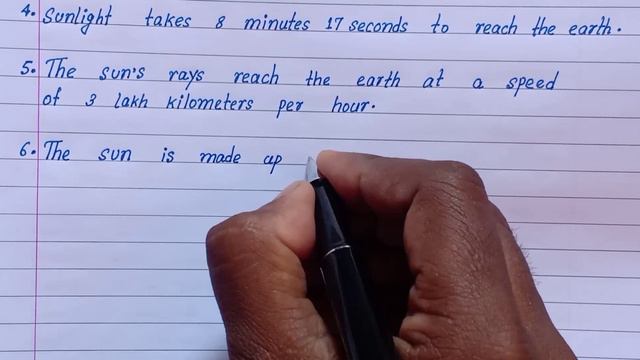 4. Sunlight takes 8 minutes 17 seconds to reach the earth.
5. The sun's rays reach the earth at a speed
of 3 lakh kilometers per hour.
6. The sun is made up